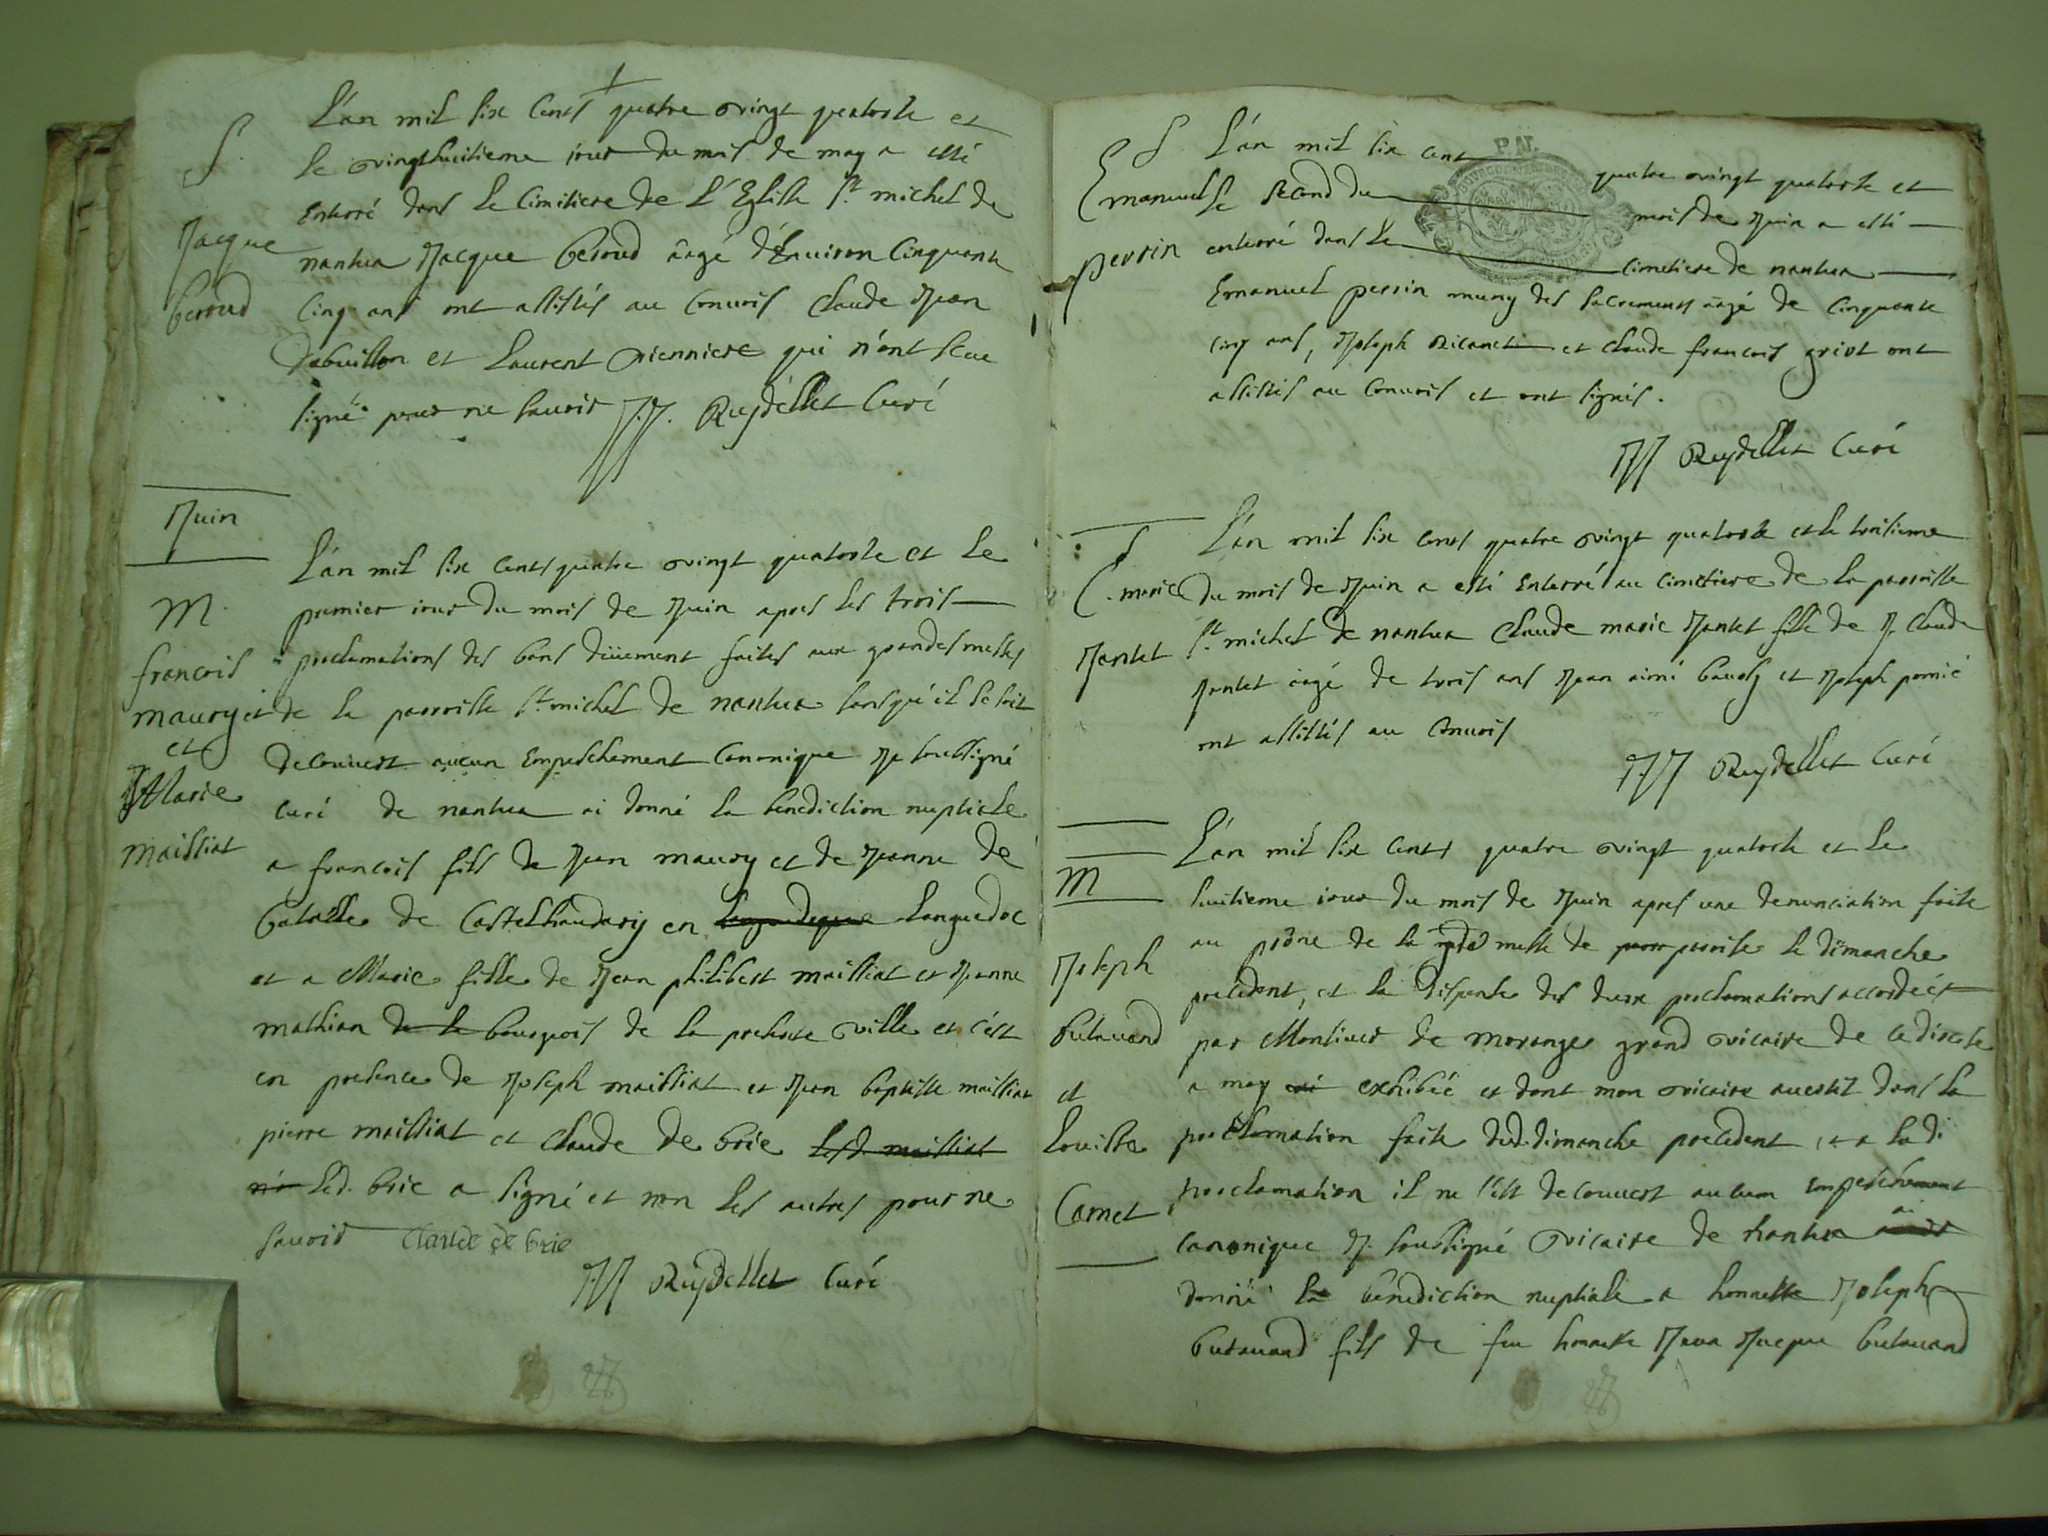 S.
Jacque
beroud
L'an mil six cents quatre vingt quatorze et
le vingthuitieme iour du mois de may a esté
enterré dans le Cimitiere de L'Eglise St. michel de
nantua Jacque beroud aagé d'Enuiron Cinquante
Cinq ans ont assistés au Conuois Claude Jean
Dabuillon et Laurent vienniere qui n'ont sceu
signé pour ne sauoir J.J. Ruydellet Curé
Juin
M.
francois
maury
et
Marie
maissiat
L'an mil six cents quatre vingt quatorze et le
premier iour du mois de Juin apres les trois
proclamations des bans düement faites aux grandes messes
et de la parroisse St. michel de nantua sans qu'il se soit
decouuert aucun empeschement canonique Je soussigné
curé de nantua ai donné la benediction nuptiale
a francois fils de Jean maury et de Jeanne de
batalle de Castelnaudary en Languedoc
et a Marie fille de Jean philibert maissiat et Jeanne
mathian de la bourgeois de la presente ville et c'est
en presence de Joseph maissiat et Jean baptiste maissiat
pierre maissiat et Claude de brie lesd. maissiat
n'o led. brie a signé et non les autres pour ne
sauoir Claude de brie
JJ Ruydellet Curé
P.N.
S.
Emanuel
perrin
L'an mil six cent quatre vingt quatorze et
le second du mois de Juin a esté
enterré dans le cimetiere de nantua
Emanuel perrin muny des sacrements aagé de cinquante
cinq ans, Joseph et claude francois griot ont
assistés au conuois et ont signés.
JJ Ruydellet Curé
S
C. marie
Jantet
L'an mil six cents quatre vingt quatorze et le troisieme
du mois de Juin a esté enterré au cimetiere de la parroisse
St. michel de nantua Claude marie Jantet fille de J. Claude
Jantet aagé de trois ans Jean aimé baudy et Joseph
ont assistés au conuois
JJ Ruydellet Curé
M
Joseph
butauand
et
Louise
Carnet
L'an mil six cents quatre vingt quatorze et le
huitieme iour du mois de Juin apres une denunciation faite
au prône de la gde messe de parroisse le dimanche
precedent, et la dispense des deux proclamations accordée
par Monsieur de morange grand vicaire de ce diocese
a moy exhibée et dont mon vicaire auertit dans la
proclamation faite dud. dimanche precedent, et a lad.
proclamation il ne s'est decouuert aucun empeschement
canonique J. soussigné vicaire de nantua ai
donné la benediction nuptiale a honneste Joseph
butauand fils de feu honneste Jean Jacque butauand